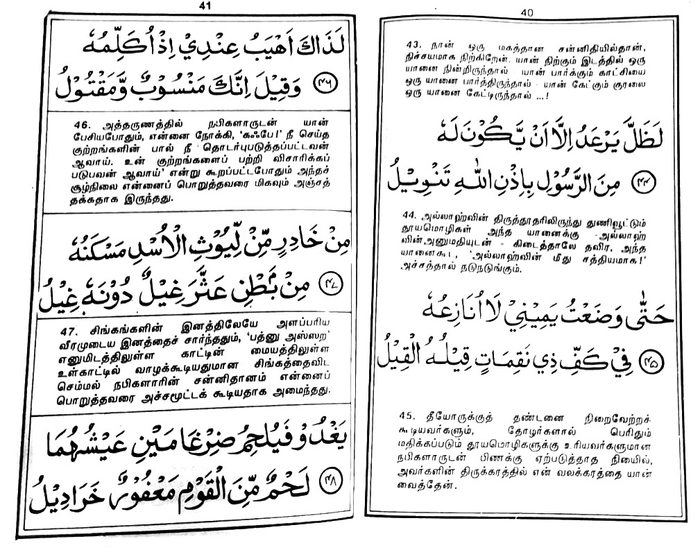 40
43. நான் ஒரு மகத்தான சன்னிதியில்தான்,
நிச்சயமாக நிற்கிறேன். யான் நிற்கும் இடத்தில் ஒரு
யானை நின்றிருந்தால் யான் பார்க்கும் காட்சியை
ஒரு யானை பார்த்திருந்தால் யான் கேட்கும் குரலை
ஒரு யானை கேட்டிருந்தால் ...!
لَظَلَّ يَرْعَدُ اِلَّا اَنْ يَّكُوْنَ لَهٗ
مِنَ الرَّسُوْلِ بِاِذْنِ اللّٰهِ تَنْوِيْلُ ﴿٤٤﴾
44. அல்லாஹ்வின் திருத்தூதரிலிருந்து துணிவூட்டும்
தூயமொழிகள் அந்த யானைக்கு -அல்லாஹ்
வின்அனுமதியுடன் - கிடைத்தாலே தவிர, அந்த
யானைகூட, 'அல்லாஹ்வின் மீது சத்தியமாக!'
அச்சத்தால் நடுநடுங்கும்.
حَتّٰى وَضَعْتُ يَمِيْنِيْ لَا اُنَازِعُهٗ
فِيْ كَفِّ ذِيْ نَقِمَاتٍ قِيْلُهُ الْقِيْلُ ﴿٤٥﴾
45. தீயோருக்குத் தண்டனை நிறைவேற்றச்
கூடியவர்களும், தோழர்களால் பெரிதும்
மதிக்கப்படும் தூயமொழிகளுக்கு உரியவர்களுமான
நபிகளாருடன் பிணக்கு ஏற்படுத்தாத நிலையில்,
அவர்களின் திருக்கரத்தில் என் வலக்கரத்தை யான்
வைத்தேன்.
41
لَذَاكَ اَهْيَبُ عِنْدِيْ اِذْ اُكَلِّمُهٗ
وَقِيْلَ اِنَّكَ مَنْسُوْبٌ وَّمَقْتُوْلُ ﴿٤٦﴾
46. அத்தருணத்தில் நபிகளாருடன் யான்
பேசியபோதும், என்னை நோக்கி, 'கஃபே! நீ செய்த
குற்றங்களின் பால் நீ தொடர்புபடுத்தப்பட்டவன்
ஆவாய். உன் குற்றங்களைப் பற்றி விசாரிக்கப்
படுபவன் ஆவாய்' என்று கூறப்பட்டபோதும் அந்தச்
சூழ்நிலை என்னைப் பொறுத்தவரை மிகவும் அஞ்சத்
தக்கதாக இருந்தது.
مِنْ خَادِرٍ مِّنْ لُّيُوْثِ الْاُسْدِ مَسْكَنُهٗ
مِنْ بَطْنِ عَثَّرَ غِيْلٌ دُوْنَهٗ غِيْلُ ﴿٤٧﴾
47. சிங்கங்களின் இனத்திலேயே அளப்பரிய
வீரமுடைய இனத்தைச் சார்ந்ததும், 'பத்னு அஸ்ஸற'
எனுமிடத்திலுள்ள காட்டின் மையத்திலுள்ள
உள்காட்டில் வாழக்கூடியதுமான சிங்கத்தைவிட
செம்மல் நபிகளாரின் சன்னிதானம் என்னைப்
பொறுத்தவரை அச்சமூட்டக் கூடியதாக அமைந்தது.
يَغْدُوْ فَيُلْحِمُ ضِرْغَامَيْنِ عَيْشُهُمَا
لَحْمٌ مِّنَ الْقَوْمِ مَعْفُوْرٌ خَرَادِيْلُ ﴿٤٨﴾